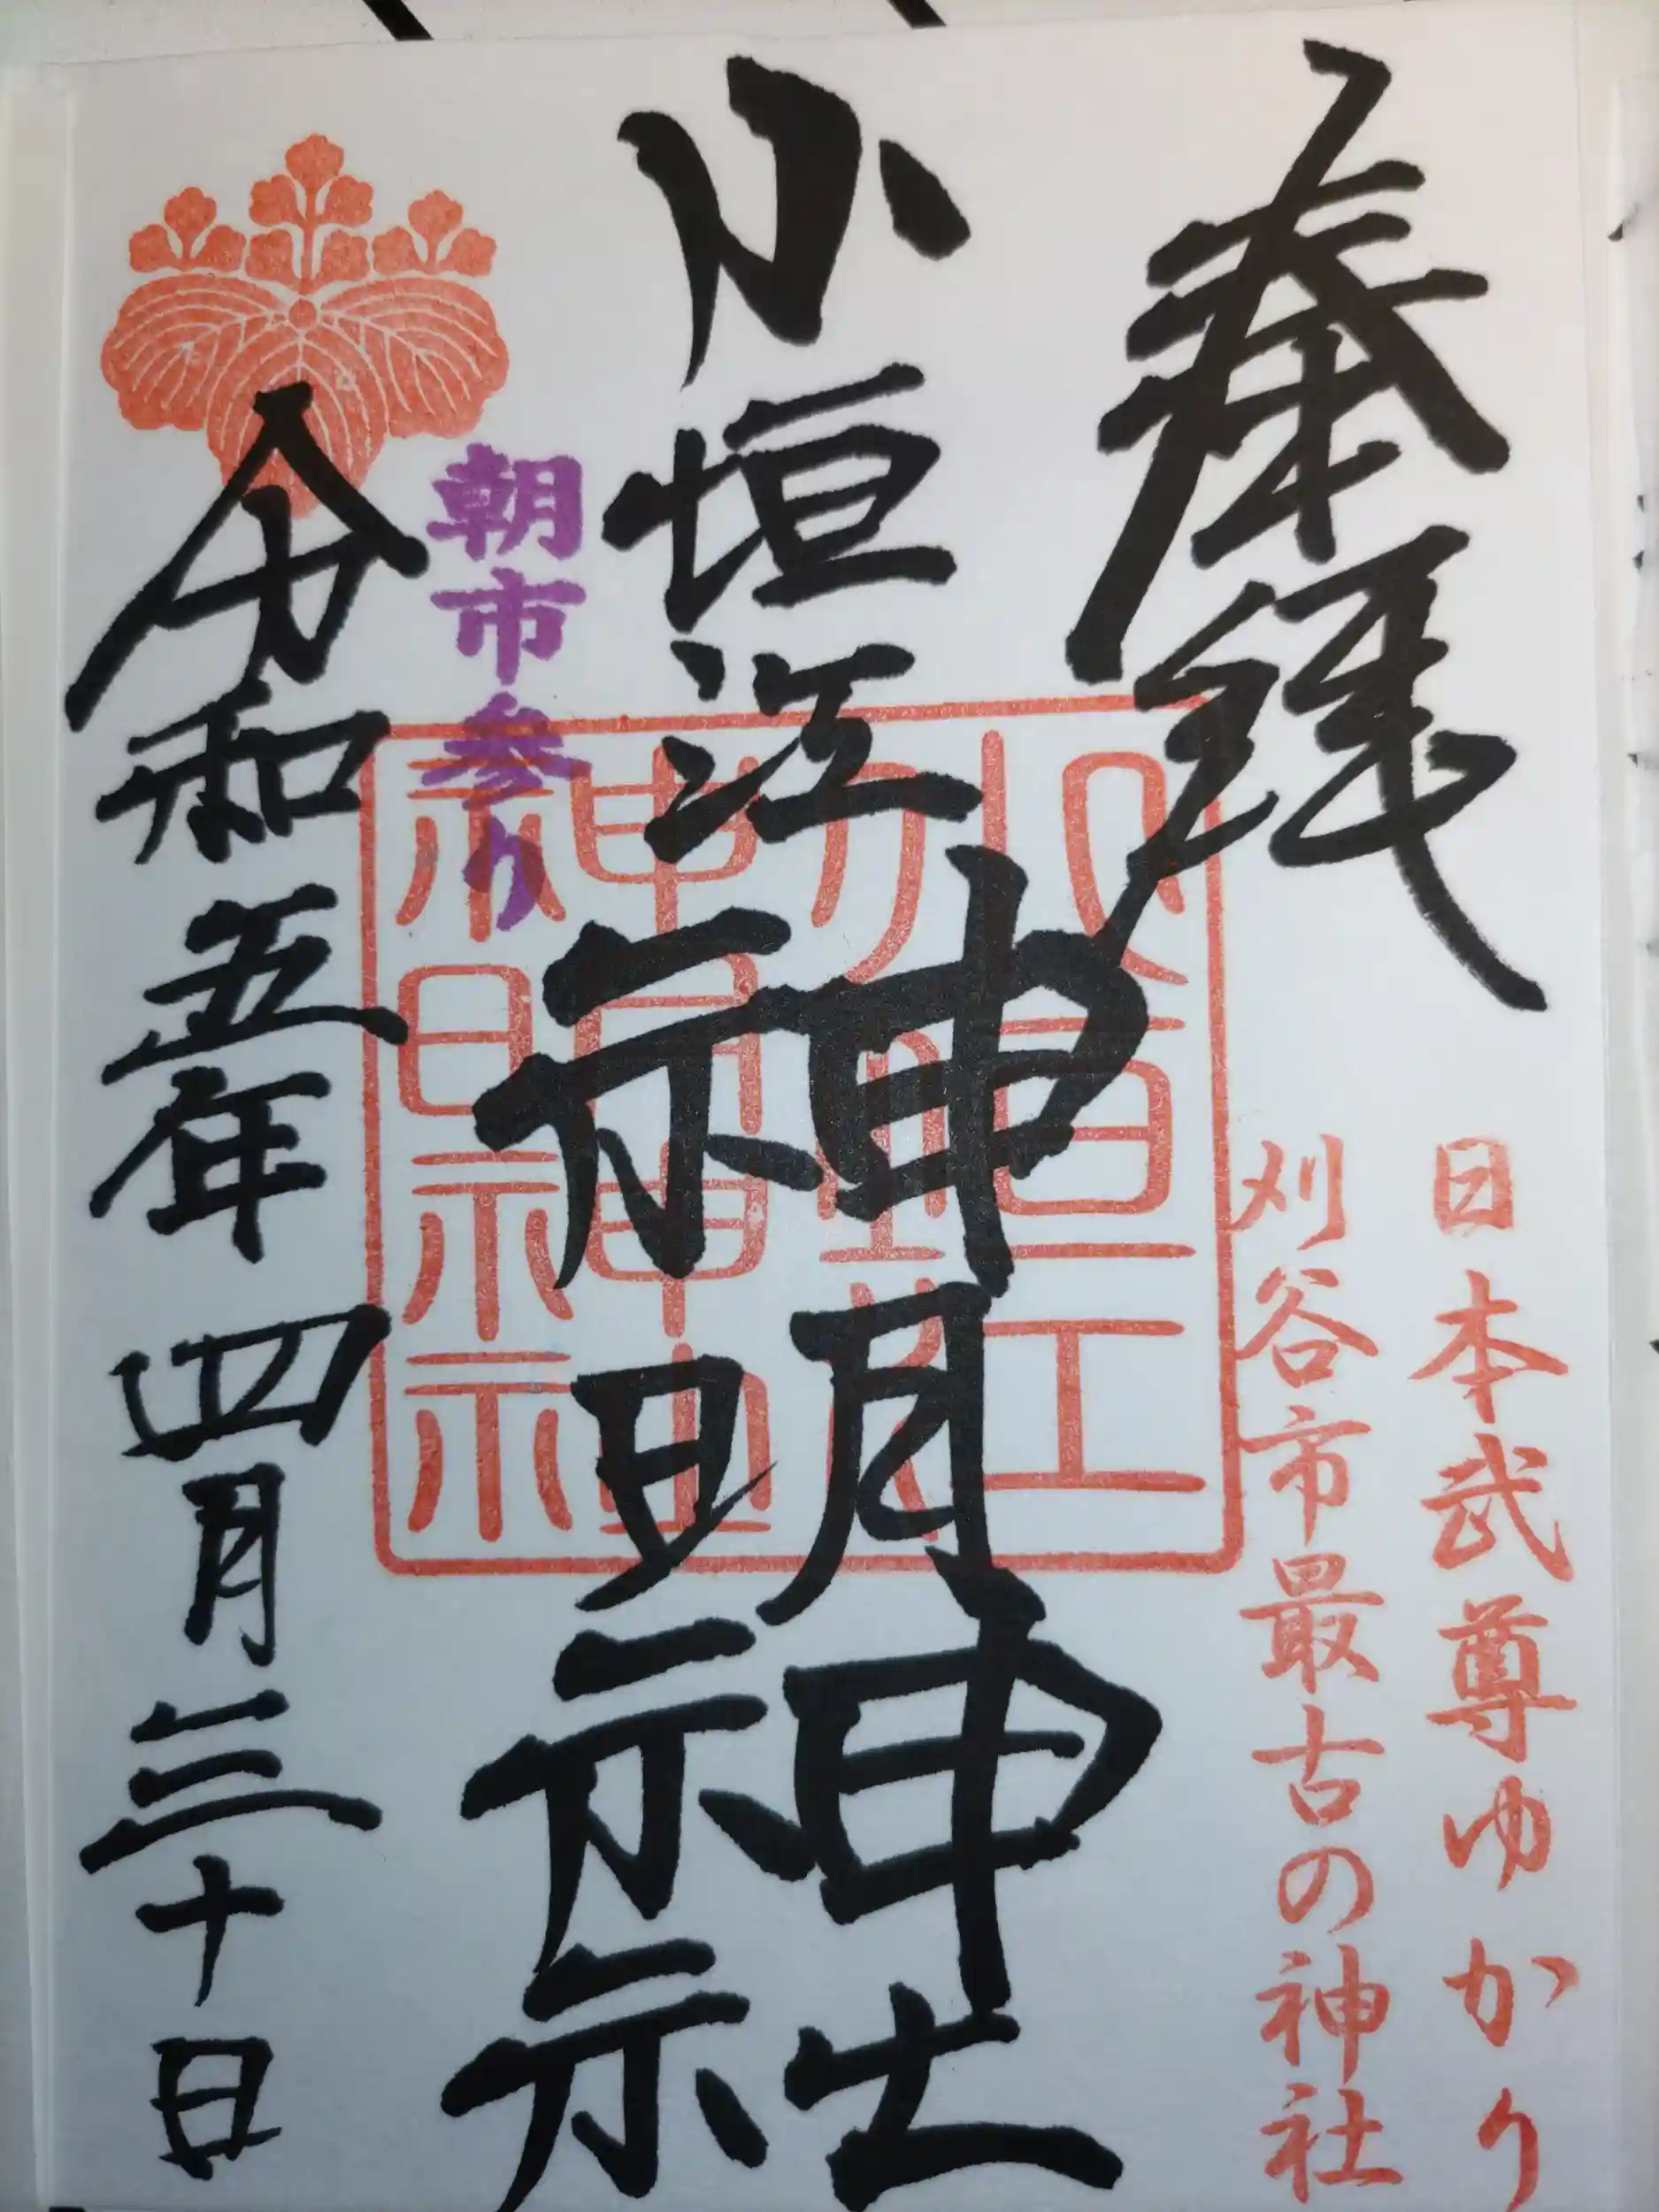 奉拝
日本武尊ゆかり
刈谷市最古の神社
小垣江神明神社
朝市参り
令和五年四月三十日